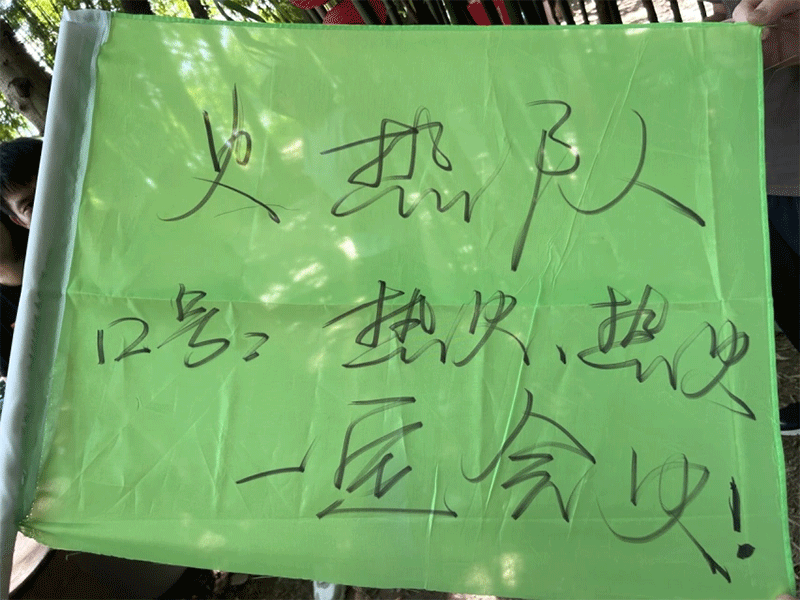 火热队
口号：热火、热火
一直会火！